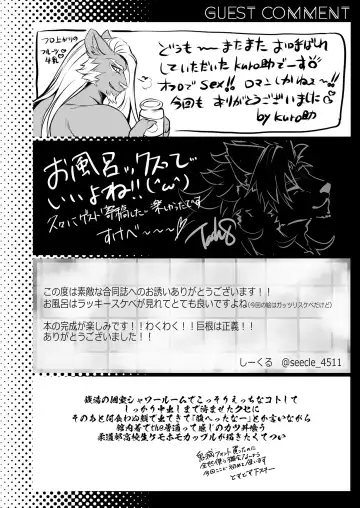 GUEST COMMENT
フロ上がりの
フルーツ
牛乳
どうも〜〜またまたお呼ばれ
していただいたkuro助でーす
オフロでSex!! ロマンしかねえ〜!!
今回も ありがとうございました
by kuro助
お風呂ックスって
いいよね!!(^ω^)
久々にゲスト寄稿したー 楽しかったです
すけべ〜〜〜〜
この度は素敵な合同誌へのお誘いありがとうございます！！
お風呂はラッキースケベが見れてとても良いですよね(今回の絵はガッツリスケベだけど)
本の完成が楽しみです！！わくわく！！巨根は正義！！
ありがとうございました！！
しーくる　@seecle_4511
銭湯の個室シャワールームでこっそりえっちなコトして
しっかり中出しまで済ませたクセに
そのあと何食わぬ顔で出てきて「腹へったなー」とか言いながら
館内着でthe普通って感じのカツ丼喰う
柔道部高校生ケモホモカップルが描きたくてつい